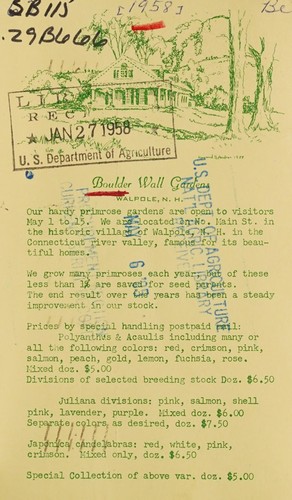 BB115 [1958] Be
.29B666
LI
REC
★ JAN 27 1958 ★
U. S. Department of Agriculture
Boulder Wall Gardens
WALPOLE, N. H.
Our hardy primrose gardens are open to visitors
May 1 to 15. We are located on No. Main St. in
the historic village of Walpole, N. H. in the
Connecticut river valley, famous for its beau-
tiful homes.
We grow many primroses each year but of these
less than 1% are saved for seed parents.
The end result over the years has been a steady
improvement in our stock.
Prices by special handling postpaid mail:
Polyanthus & Acaulis including many or
all the following colors: red, crimson, pink,
salmon, peach, gold, lemon, fuchsia, rose.
Mixed doz. $5.00
Divisions of selected breeding stock Doz. $6.50
Juliana divisions: pink, salmon, shell
pink, lavender, purple. Mixed doz. $6.00
Separate colors as desired, doz. $7.50
Japonica candelabras: red, white, pink,
crimson. Mixed only, doz. $6.50
Special Collection of above var. doz. $5.00
U.S. DEPT. OF AGRICULTURE
LIBRARY
MAY 6